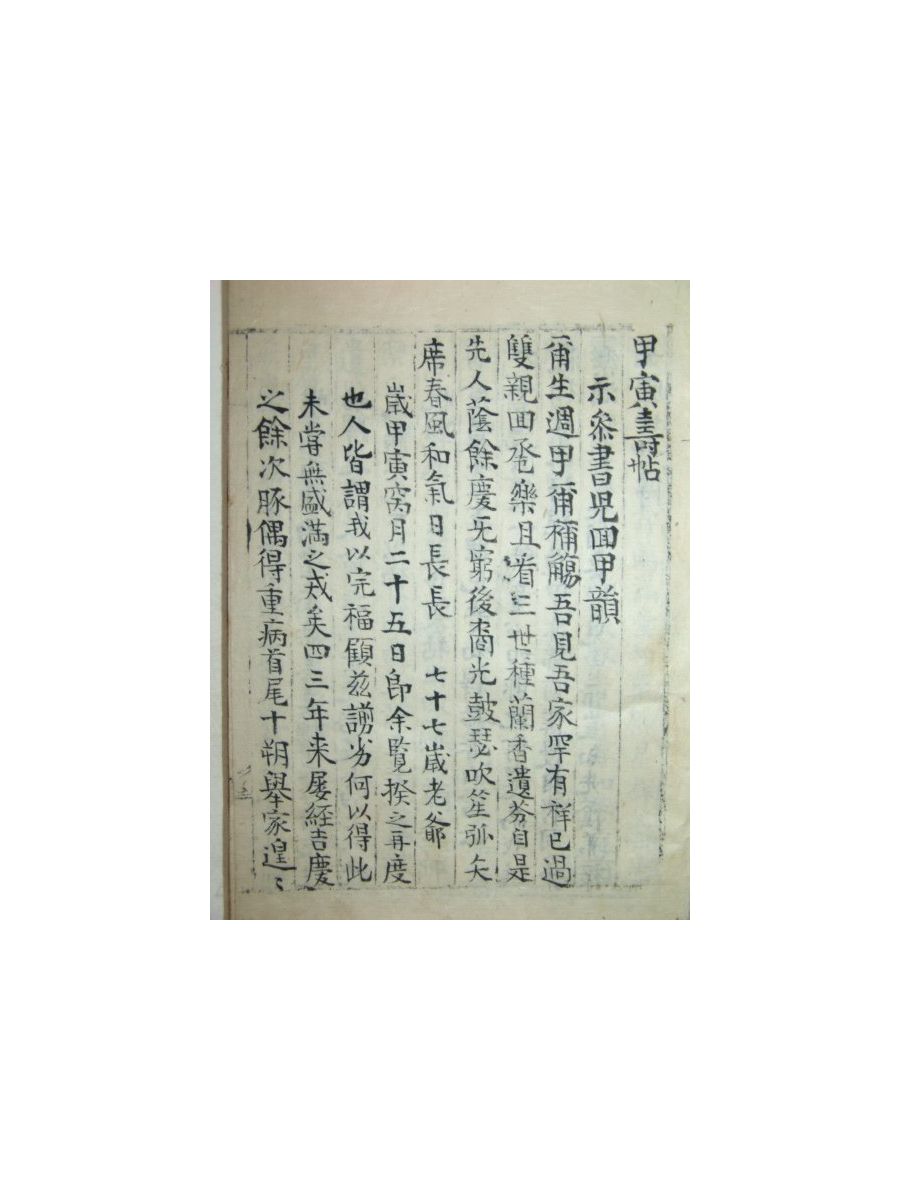 甲寅壽帖
示參書兒回甲韻
爾生週甲爾稱觴吾見吾家罕有祥已過
雙親回巹樂且看三世種蘭香遺芬自是
先人蔭餘慶无窮後裔光鼓瑟吹笙弧矢
席春風和氣日長長 七十七歲老爺
歲甲寅窝月二十五日卽余覽揆之再度
也人皆謂我以完福顧兹謭劣何以得此
未嘗無盛滿之戒矣四三年来屡経吉慶
之餘次豚偶得重病首尾十朔擧家遑〻